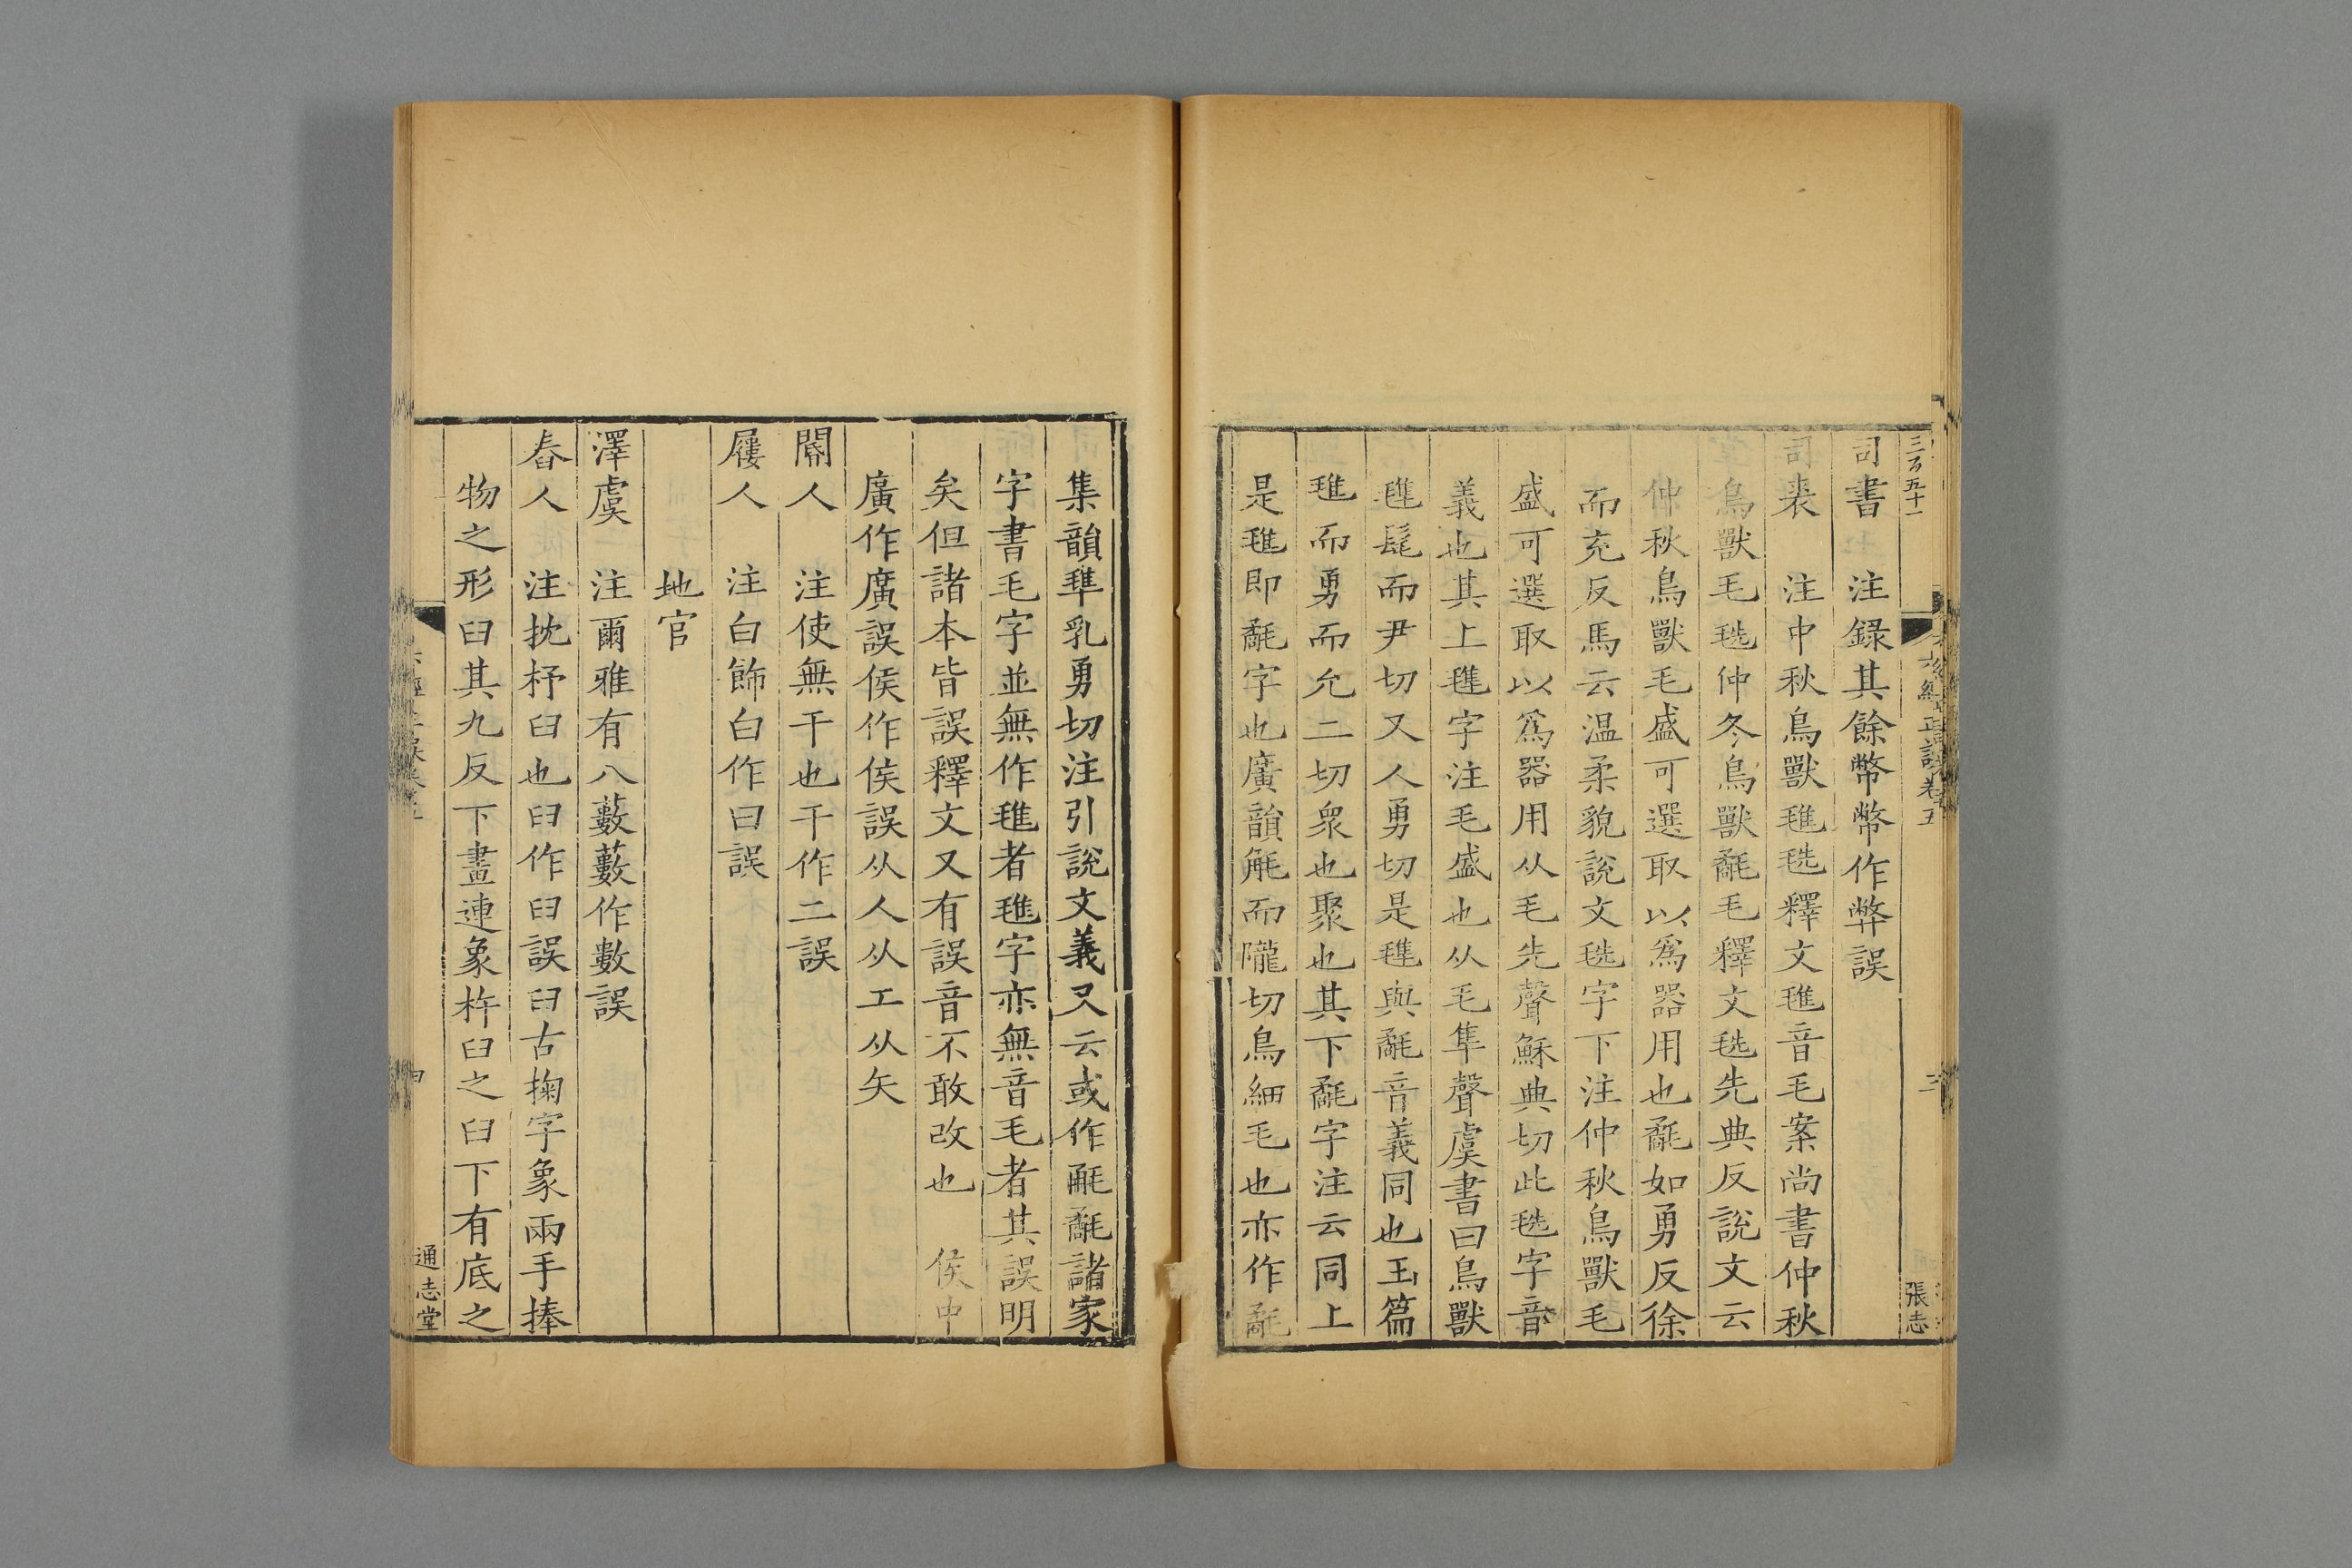 三百五十一
六經正誤卷五
三
張志
司書　注録其餘幣幣作弊誤
司裘　注中秋鳥獸毨毨釋文毨音毛案尚書仲秋
鳥獸毛毨仲冬鳥獸氄毛釋文毨先典反說文云
仲秋鳥獸毛盛可選取以爲器用也氄如勇反徐
而充反馬云温柔貌說文毨字下注仲秋鳥獸毛
盛可選取以爲器用从毛先聲穌典切此毨字音
義也其上䍴字注毛盛也从毛隼聲虞書曰鳥獸
䍴髦而尹切又人勇切是䍴與氄音義同也玉篇
䍴而勇而允二切衆也聚也其下氄字注云同上
是䍴即氄字也廣韻㲝而隴切鳥細毛也亦作氄
集韻䍴乳勇切注引說文義又云或作㲝氄諸家
字書毛字並無作毨者毨字亦無音毛者其誤明
矣但諸本皆誤釋文又有誤音不敢改也　侯中
廣作廣誤侯作侯誤从人从工从矢
閽人　注使無干也干作二誤
屨人　注白飾白作曰誤
地官
澤虞　注爾雅有八藪藪作數誤
舂人　注抌杼臼也臼作𦥑誤𦥑古掬字象兩手捧
物之形𦥑其九反下畫連象杵臼之臼下有底之
通志堂